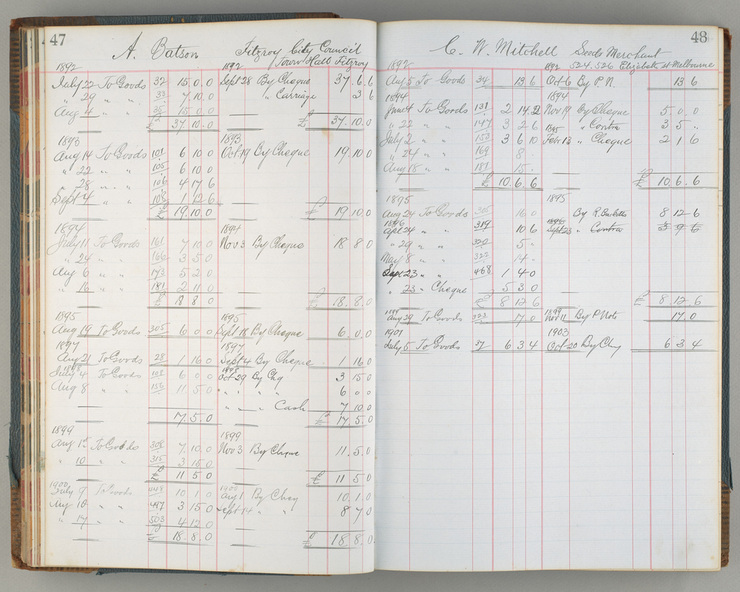 47
A. Batson Fitzroy City Council
Town Hall Fitzroy
1892 1892
July 22 To Goods 32 15.0.0 Sept 28 By Cheque 37.6.6
" 29 " " 33 7.10.0 " Carriage 3 6
Aug 4 " " 35 15.0.0
£ 37.10.0 £ 37.10.0
1893 1893
Aug 14 To Goods 101 6 10.0 Oct 19 By Cheque 19.10.0
" 22 " " 105 6 10.0
" 28 " " 106 4 17 6
Sept 4 " " 108 1 12 6
£ 19 10.0 £ 19.10.0
1894 1894
July 11 To Goods 161 7 10.0 Nov 3 By Cheque 18 8.0
" 24 " " 166 3 5.0
Aug 6 " " 173 5 2.0
" 16 " " 181 2 11.0
£ 18 8.0 £ 18.8.0
1895 1895
Aug 19 To Goods 305 6 0.0 Sept 18 By Cheque 6.0.0
1897 1897
Aug 21 To Goods 28 1 16.0 Sept 24 By Cheque 1 16.0
1898 1898
July 4 To Goods 102 6 0.0 Oct 29 By Chq 3 15.0
Aug 8 " " 11 5.0 " " " 6 0.0
" " Cash 7 10.0
17.5.0 £ 17.5.0
1899 1899
Aug 15 To Goods 308 7.10.0 Nov 3 By Cheque 11.5.0
" 10 " " 315 3 15.0
£ 11 5.0 £ 11 5.0
1900 1900
July 9 To Goods 10 1.0 Aug 1 By Chq 10.1.0
Aug 16 " " 497 3 15.0 Sept 14 " " 8 7.0
" 17 " " 503 4.12.0
18.8.0 £ 18.8.0
48
C. W. Mitchell Seeds Merchant
524.526 Elizabeth St Melbourne
1892 1892
Aug 5 To Goods 34 13.6 Oct 6 By P.N. 13.6
1894 1894
June 4 To Goods 131 2 14.2 Nov 19 By Cheque 5.0.0
" 22 " " 147 3 2 6 " Contra 3 5.
July 2 " " 152 3 6 10 1895 Feb 13 " Cheque 2 1 6
" 24 " " 169 8
Aug 18 " " 181 15
£ 10.6.6 £ 10.6.6
1895 1895
Aug 29 To Goods 305 16.0 By R. 8 12.6
1896 1896
Apl 24 " " 319 10 6 Sept 23 " Contra 3 9 6
" 29 " " 5
May 8 " " 14
Sept 23 " " 468 1 4 0
" 23 " Cheque 5 3 0
£ 8 12 6 £ 8.12.6
1899 1899
Aug 29 To Goods 17.0 Nov 11 By P. Note 17.0
1901 1903
July 5 To Goods 7 6 3 4 Oct 20 By Chq 6 3 4